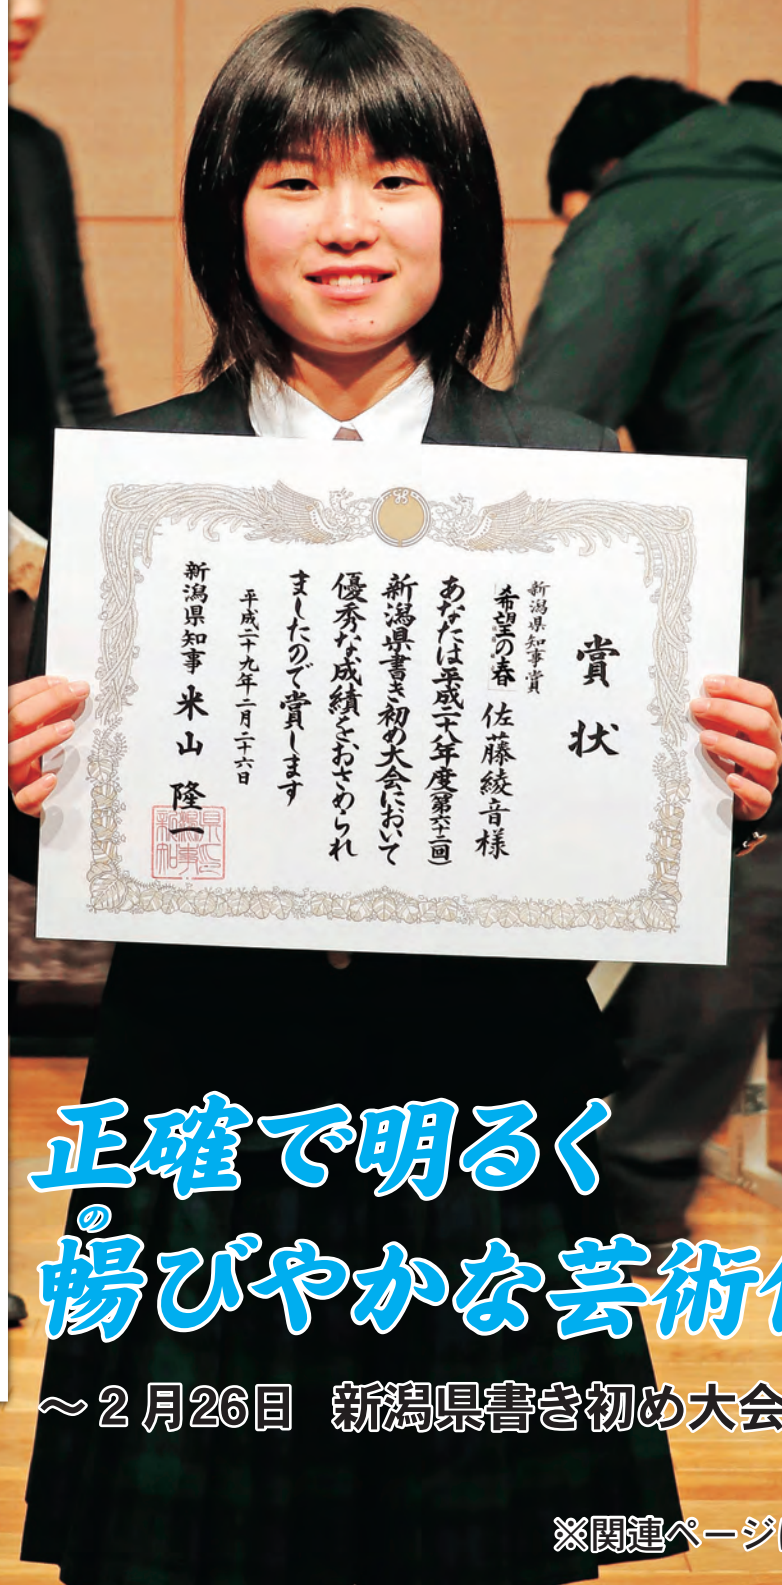 賞状
新潟県知事賞
「希望の春」 佐藤綾音様
あなたは平成二十八年度(第六十二回)
新潟県書き初め大会において
優秀な成績をおさめられ
ましたので賞します
平成二十九年二月二十六日
新潟県知事 米山隆一
新潟県知事印
正確で明るく
の
暢びやかな芸術
～2月26日 新潟県書き初め大会
※関連ページ